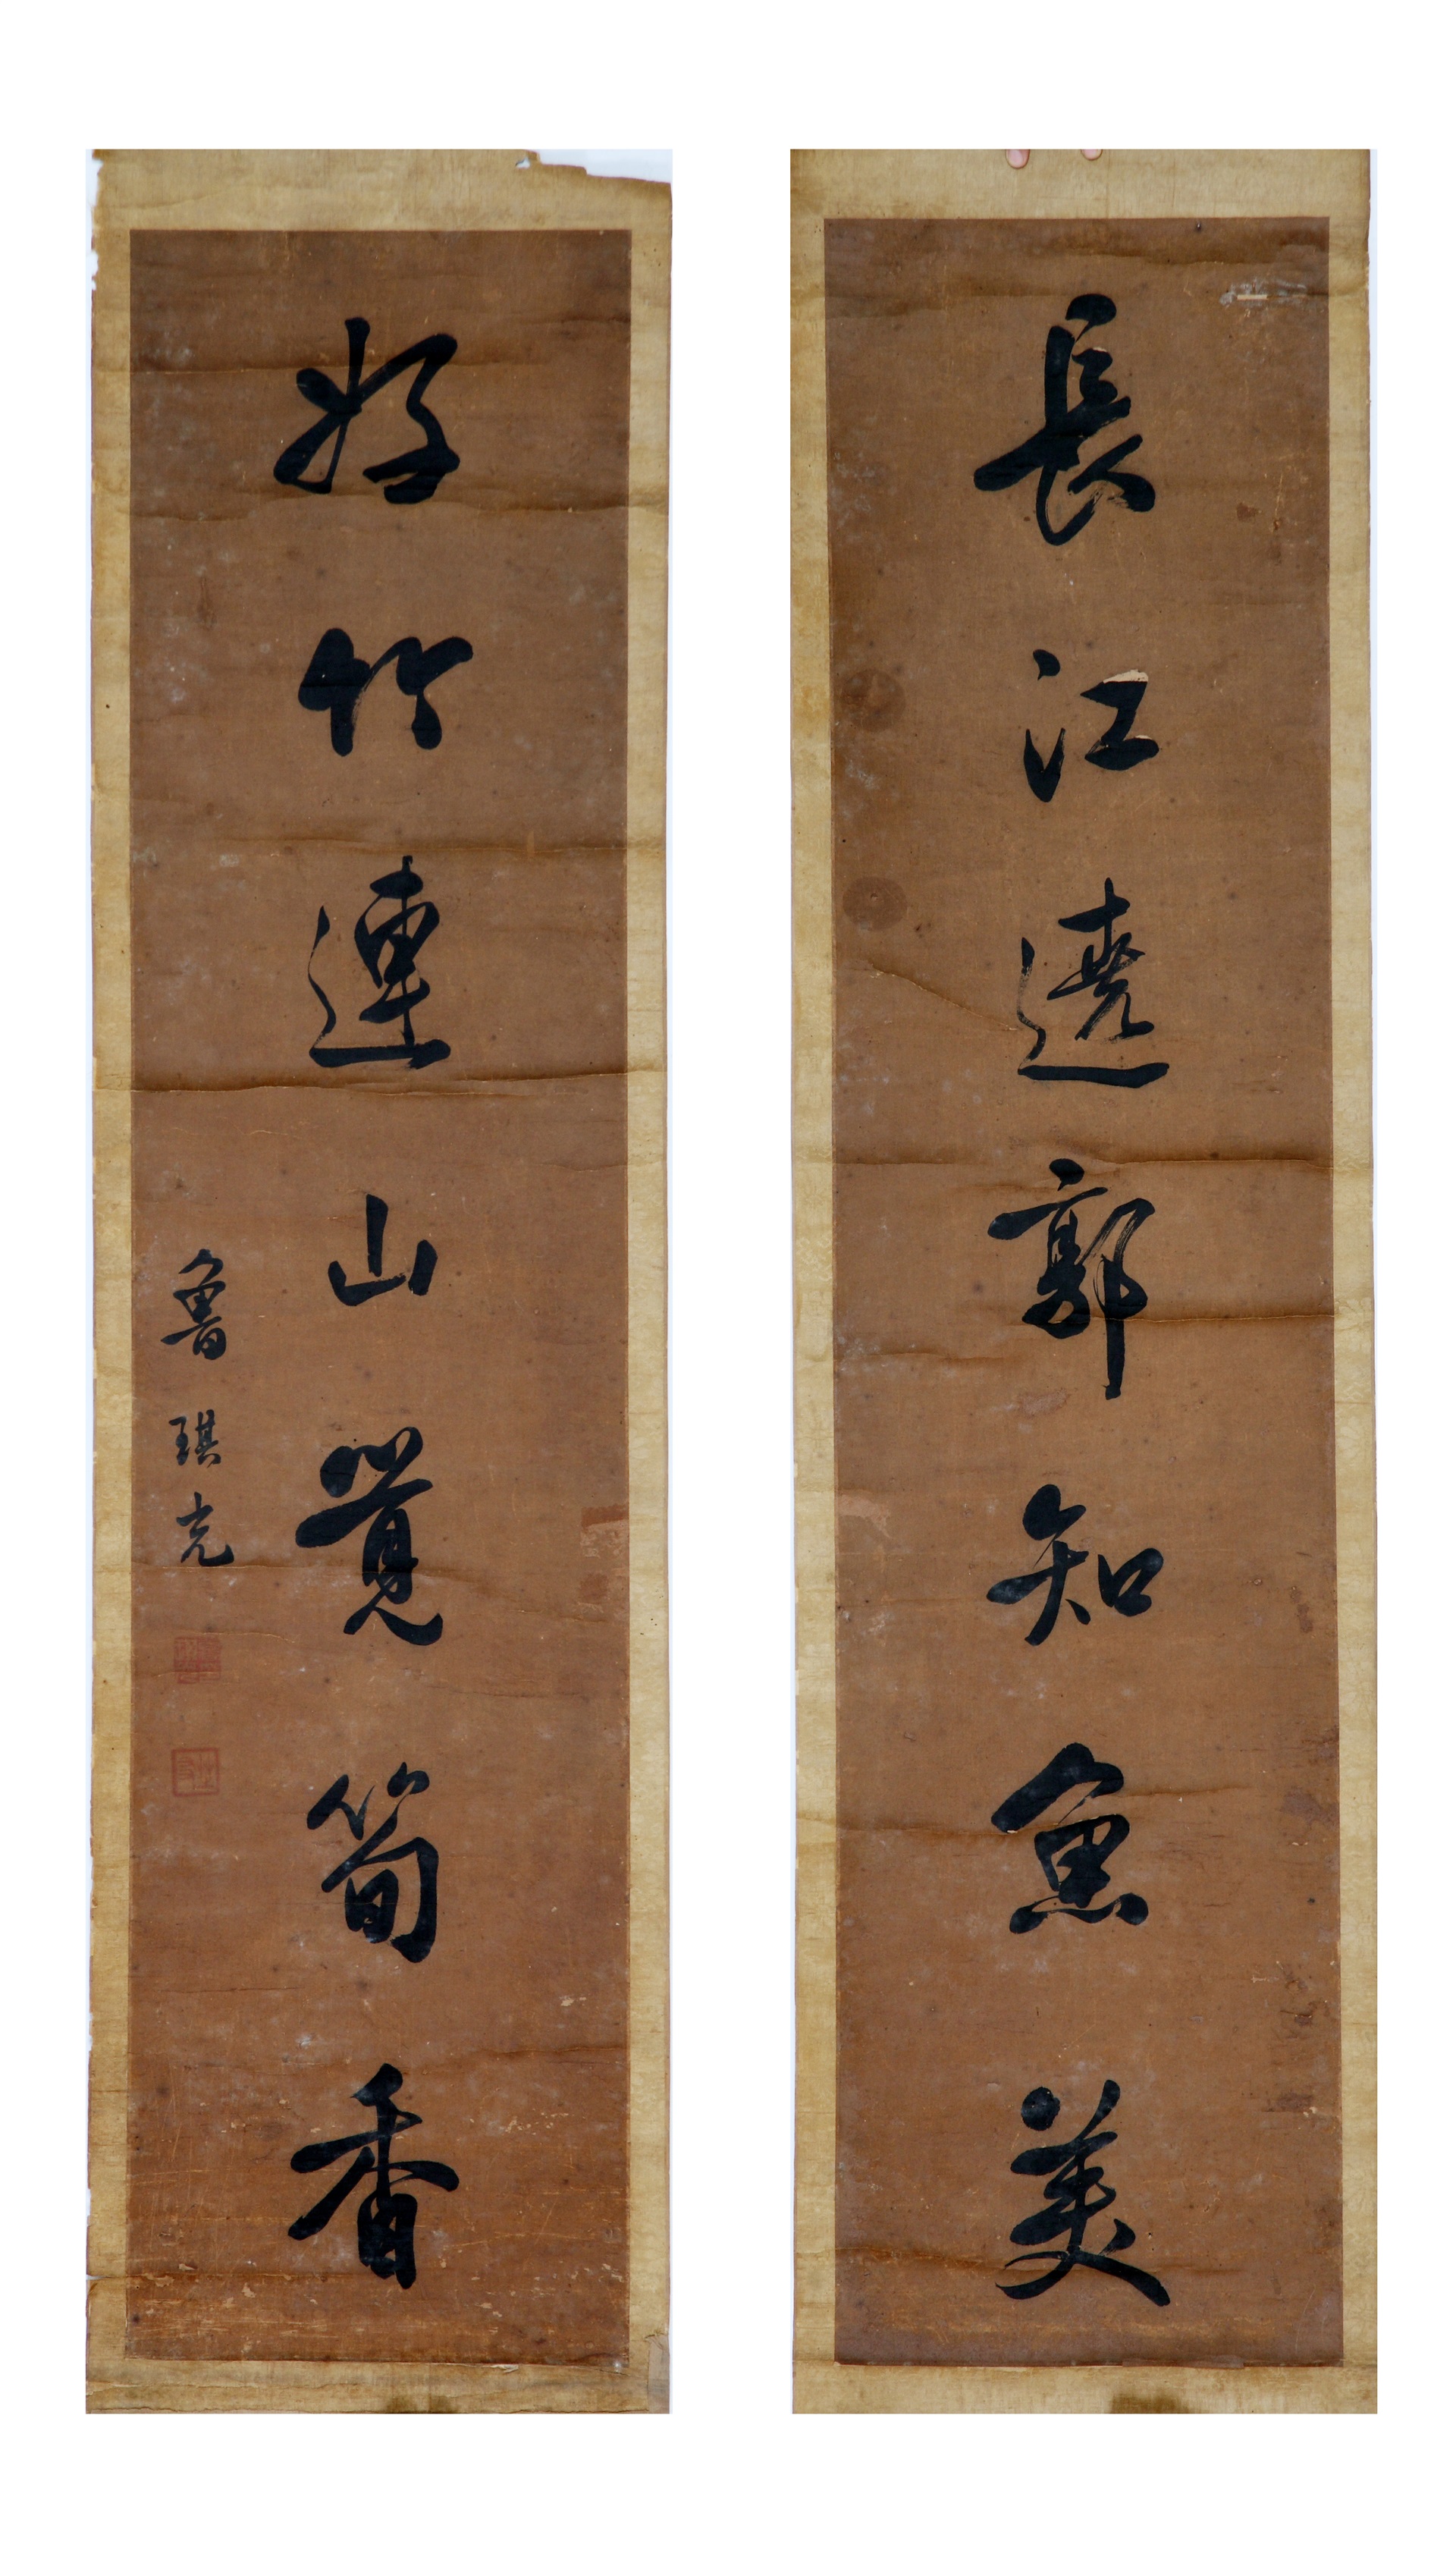 長江遶郭知魚美
好竹連山覺筍香
魯琪光